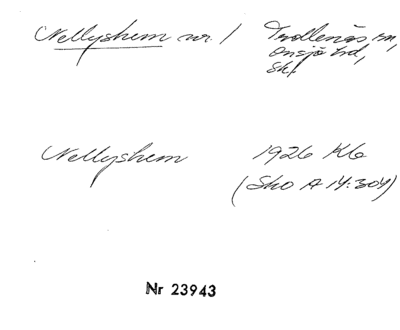 Nellyshem nr. 1 Trollenäs sn,
Onsjö hd,
Sk.
Nellyshem 1926 Kb
(Sko A 14:304)
Nr 23943